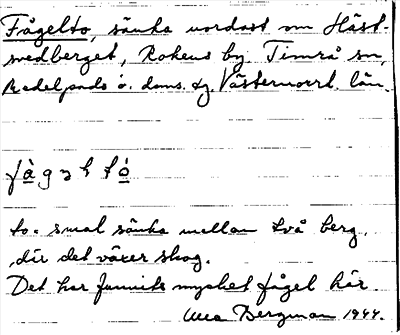 Fågelto, sänka nordost om Häst-
svedberget, Rokens by Timrå sn,
Medelpads ö. doms. tg. Västernorrl. län.
fàgəltó
to = smal sänka mellan två berg,
där det växer skog.
Det har funnits mycket fågel här.
Bergman 1944.